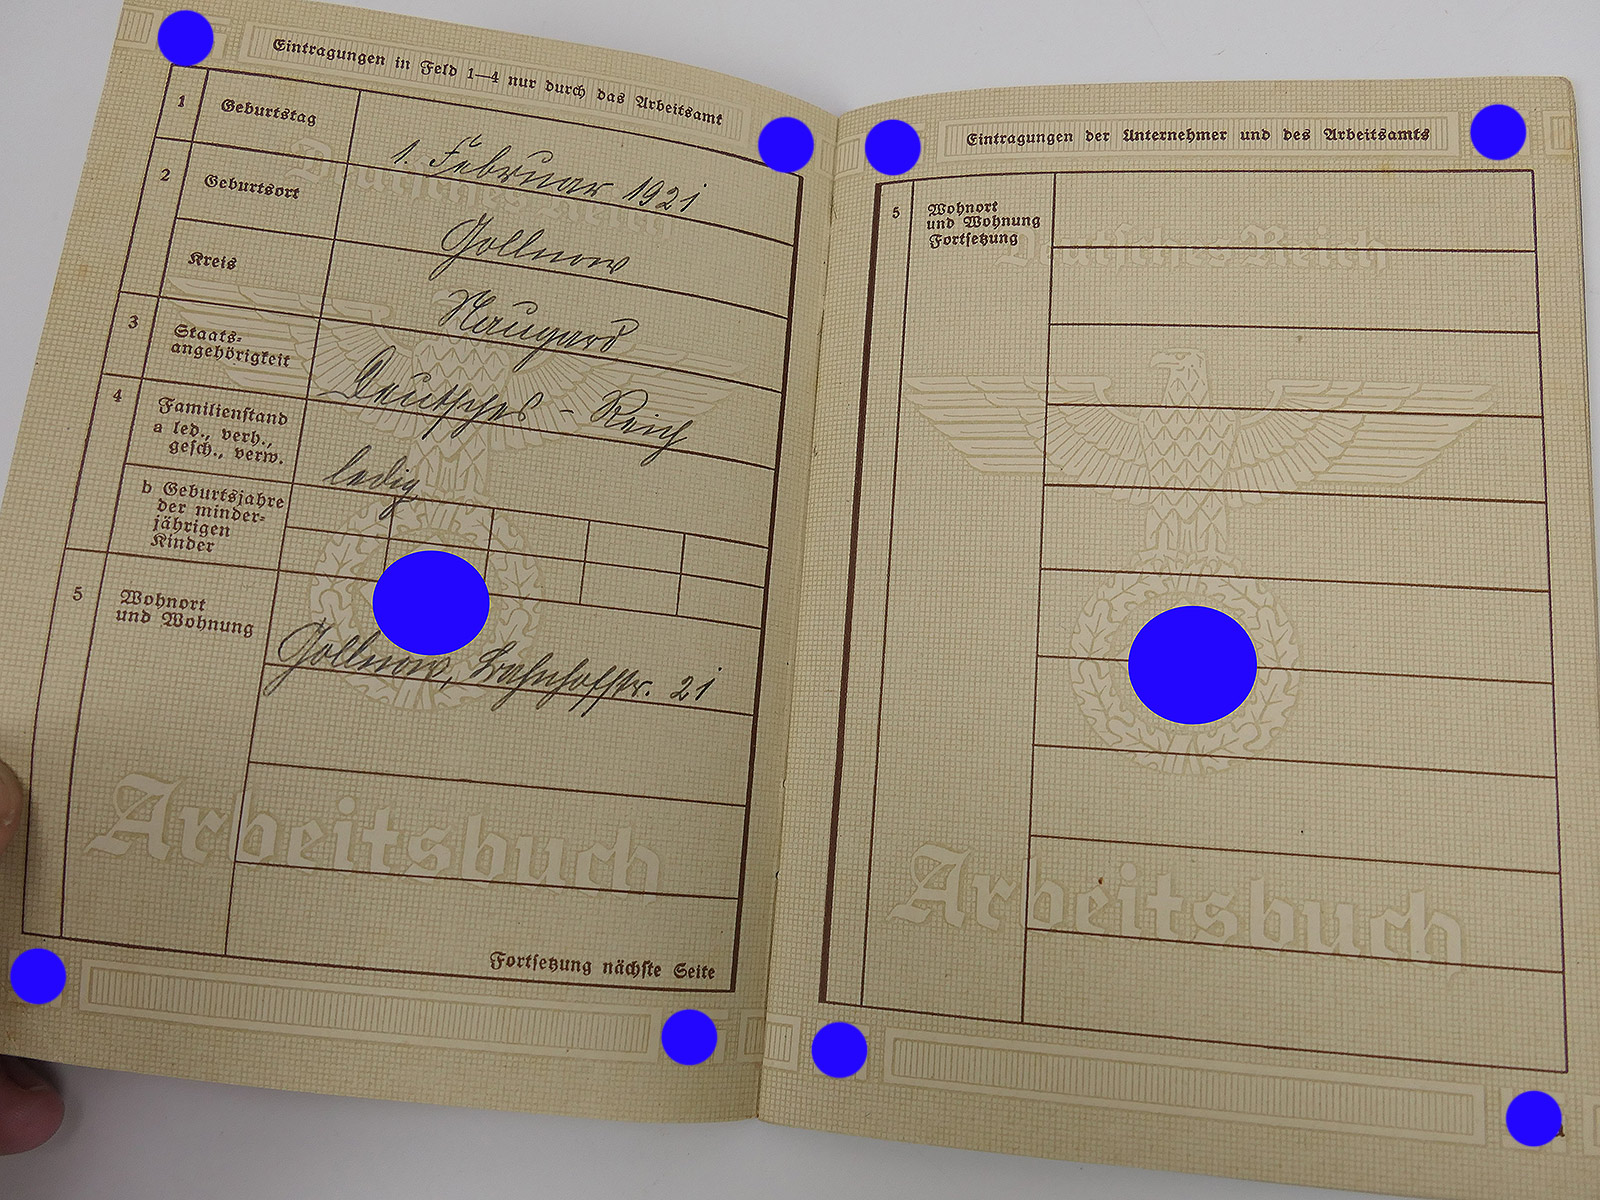 Eintragungen in Feld 1—4 nur durch das Arbeitsamt
1 Geburtstag 1. Februar 1921
2 Geburtsort Gollnow
Kreis Naugard
3 Staats-
angehörigkeit Deutsches-Reich
4 Familienstand
a led., verh.,
gesch., verw. ledig
b Geburtsjahre
der minder-
jährigen
Kinder
5 Wohnort
und Wohnung Gollnow, Bahnhofstr. 21
Fortsetzung nächste Seite
Deutsches Reich
Arbeitsbuch
Eintragungen der Unternehmer und des Arbeitsamts
5 Wohnort
und Wohnung
Fortsetzung
Deutsches Reich
Arbeitsbuch